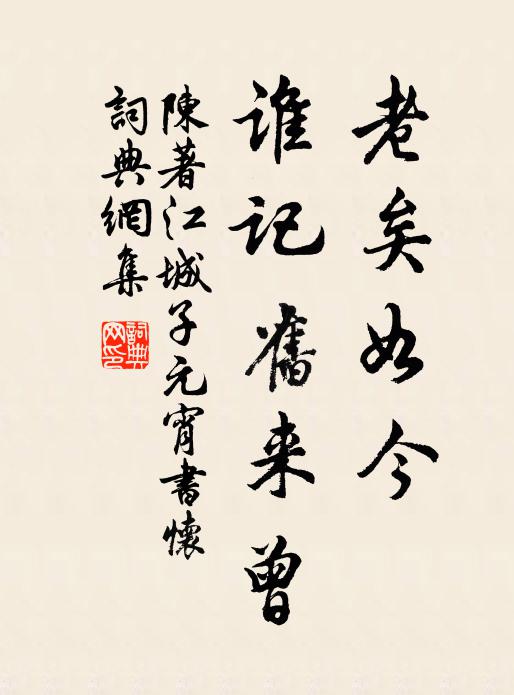 老矣如今
谁记舊来曾
陳著江城子元宵書懷
詞典網集
詞典网印